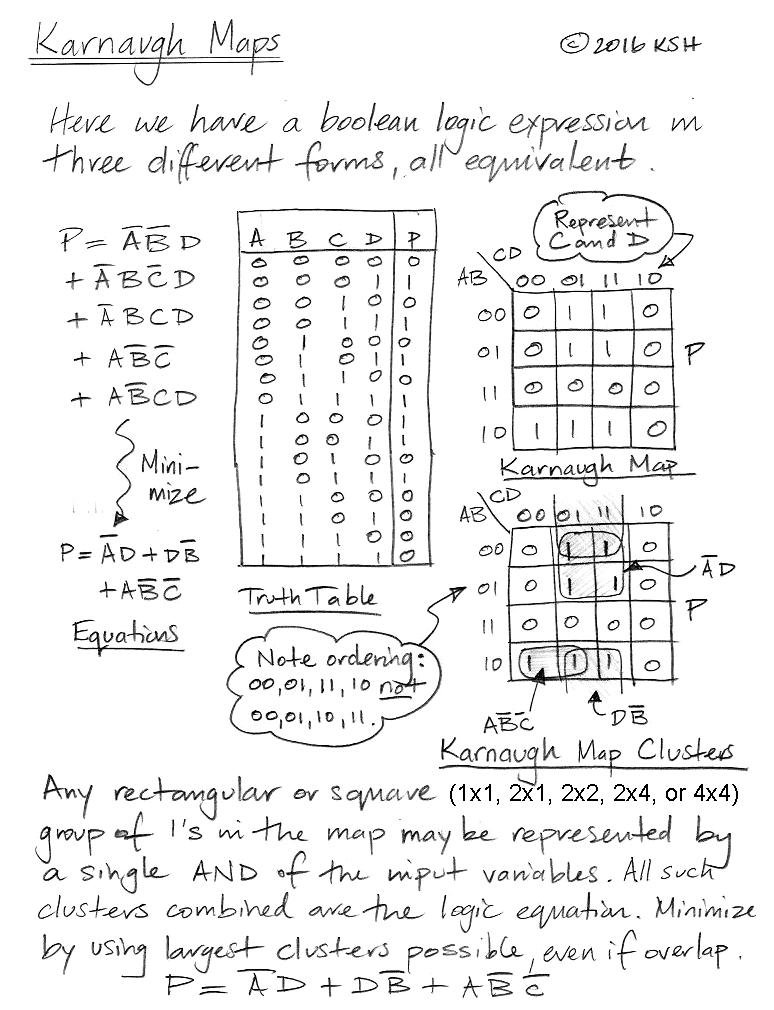 Karnaugh Maps
© 2016 KSH
Here we have a boolean logic expression in
three different forms, all equivalent.
P = A̅B̅D
+ A̅BC̅D
+ A̅BCD
+ AB̅C̅
+ AB̅CD
Mini-
mize
P = A̅D + DB̅
+ AB̅C̅
Equations
A B C D P
0 0 0 0 0
0 0 0 1 1
0 0 1 0 0
0 0 1 1 1
0 1 0 0 0
0 1 0 1 1
0 1 1 0 0
0 1 1 1 1
1 0 0 0 1
1 0 0 1 1
1 0 1 0 0
1 0 1 1 1
1 1 0 0 0
1 1 0 1 0
1 1 1 0 0
1 1 1 1 0
Truth Table
Represent
C and D
CD
AB 00 01 11 10
00 0 1 1 0
01 0 1 1 0 P
11 0 0 0 0
10 1 1 1 0
Karnaugh Map
CD
AB 00 01 11 10
00 0 1 1 0
A̅D
01 0 1 1 0
P
11 0 0 0 0
10 1 1 1 0
AB̅C̅ DB̅
Karnaugh Map Clusters
Note ordering:
00,01,11,10 not
00,01,10,11.
Any rectangular or square (1x1, 2x1, 2x2, 2x4, or 4x4)
group of 1's in the map may be represented by
a single AND of the input variables. All such
clusters combined are the logic equation. Minimize
by using largest clusters possible, even if overlap.
P = A̅D + DB̅ + AB̅C̅